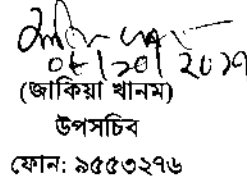 ০৮/১০/২০১৭
(জাকিয়া খানম)
উপসচিব
ফোন: ৯৫৫৩২৭৬